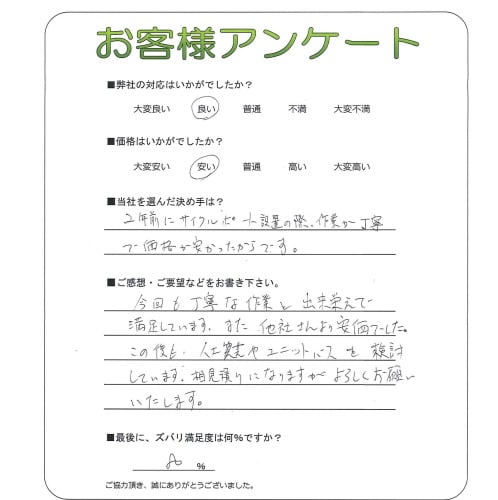 お客様アンケート
■弊社の対応はいかがでしたか？
大変良い 良い 普通 不満 大変不満
■価格はいかがでしたか？
大変安い 安い 普通 高い 大変高い
■当社を選んだ決め手は？
2年前にサイクルポート設置の際、作業が丁寧
で価格が安かったからです。
■ご感想・ご要望などをお書き下さい。
今回も丁寧な作業と出来栄えで
満足しています。また他社さんより安価でした。
この後も、人工芝やユニットバスを検討
しています。相見積りになりますがよろしくお願い
いたします。
■最後に、ズバリ満足度は何％ですか？
％
ご協力頂き、誠にありがとうございました。